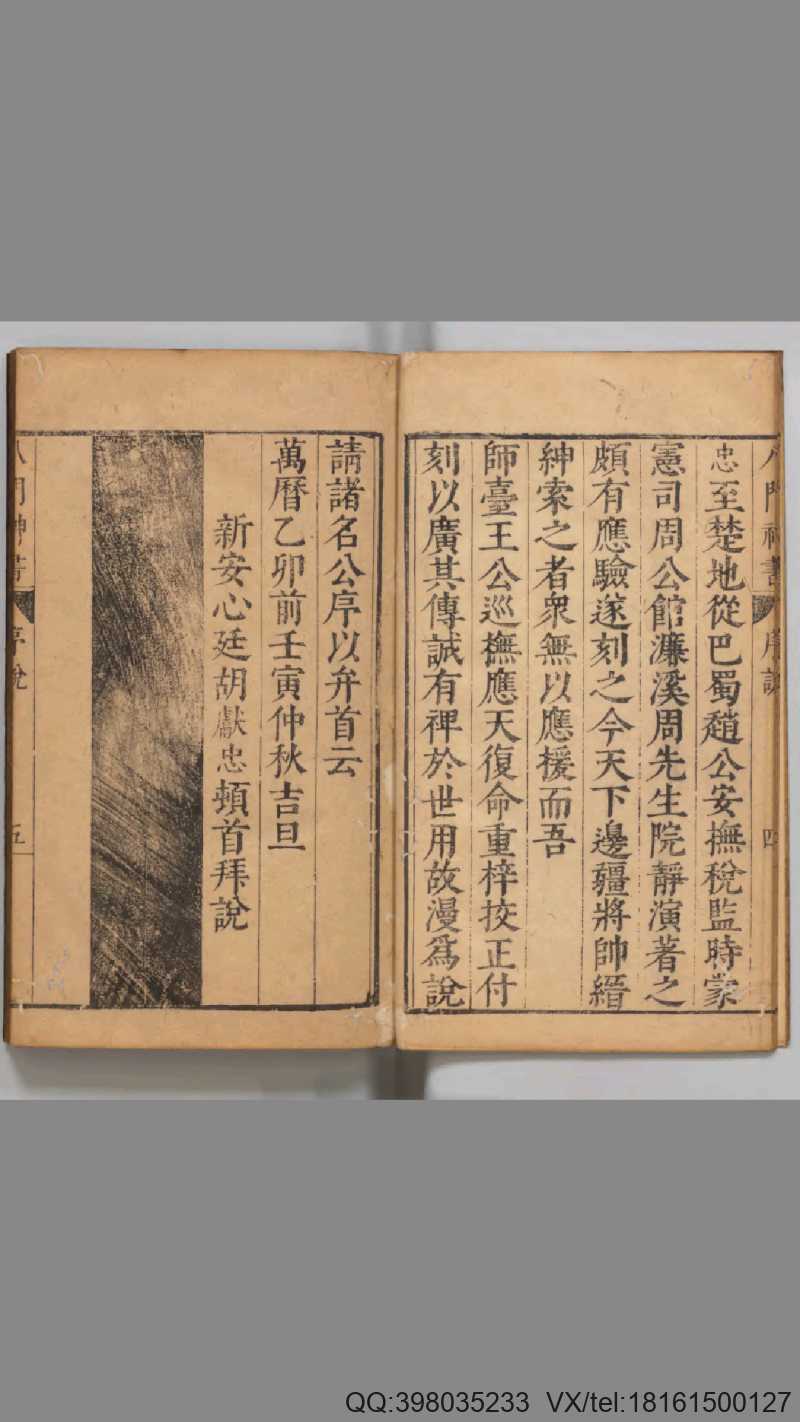 八門神書 序說 四
忠至楚地從巴蜀趙公安撫稅監時蒙
憲司周公館濂溪周先生院靜演著之
頗有應驗遂刻之今天下邊疆將帥縉
紳索之者衆無以應援而吾
師臺王公巡撫應天復命重梓挍正付
刻以廣其傳誠有裨於世用故漫爲說
請諸名公序以弁首云
萬曆乙卯前壬寅仲秋吉旦
新安心廷胡獻忠頓首拜說
八門神書 序說 五
QQ:398035233 VX/tel:18161500127